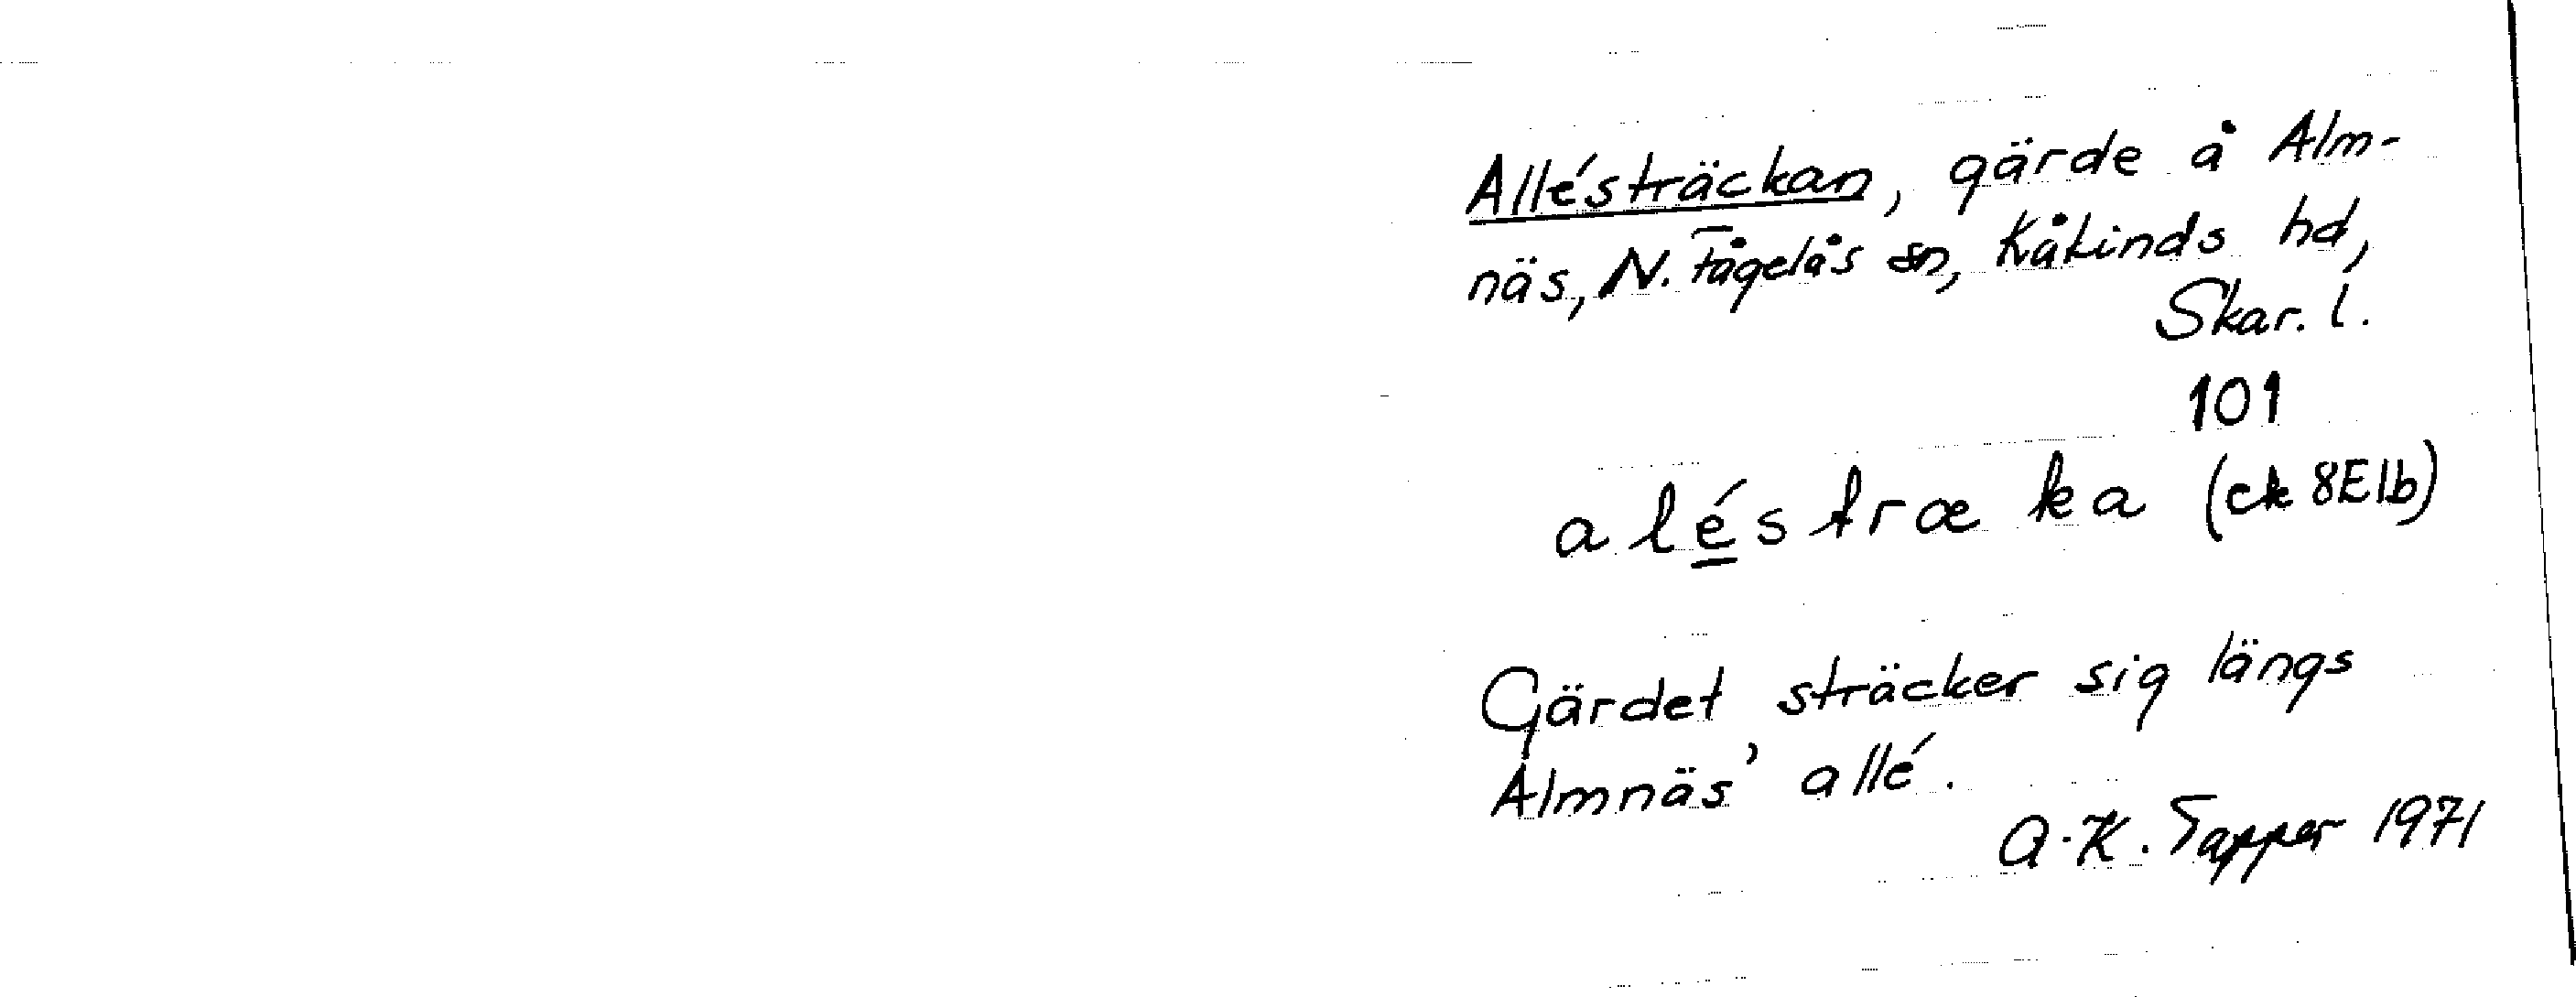 Allésträckan, gärde å Alm-
näs, N. Fågelås sn, Kåkinds hd,
Skar. l.
101
aléstræka (ek 8E1b)
Gärdet sträcker sig längs
Almnäs' allé.
A-K. Tapper 1971